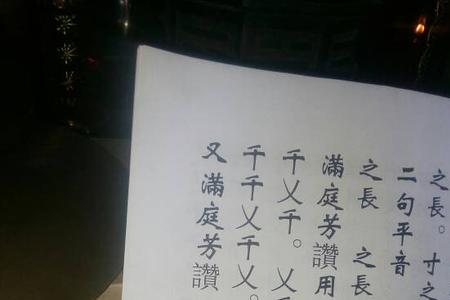 之長。寸之
二句平音
之長 之長
滿庭芳讚用
千乂千。乂
千千乂千乂。
又滿庭芳讚